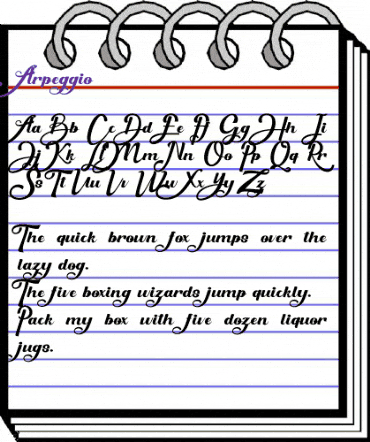 Arpeggio
Aa Bb Cc Dd Ee Ff Gg Hh Ii
Jj Kk Ll Mm Nn Oo Pp Qq Rr
Ss Tt Uu Vv Ww Xx Yy Zz
The quick brown fox jumps over the
lazy dog.
The five boxing wizards jump quickly.
Pack my box with five dozen liquor
jugs.